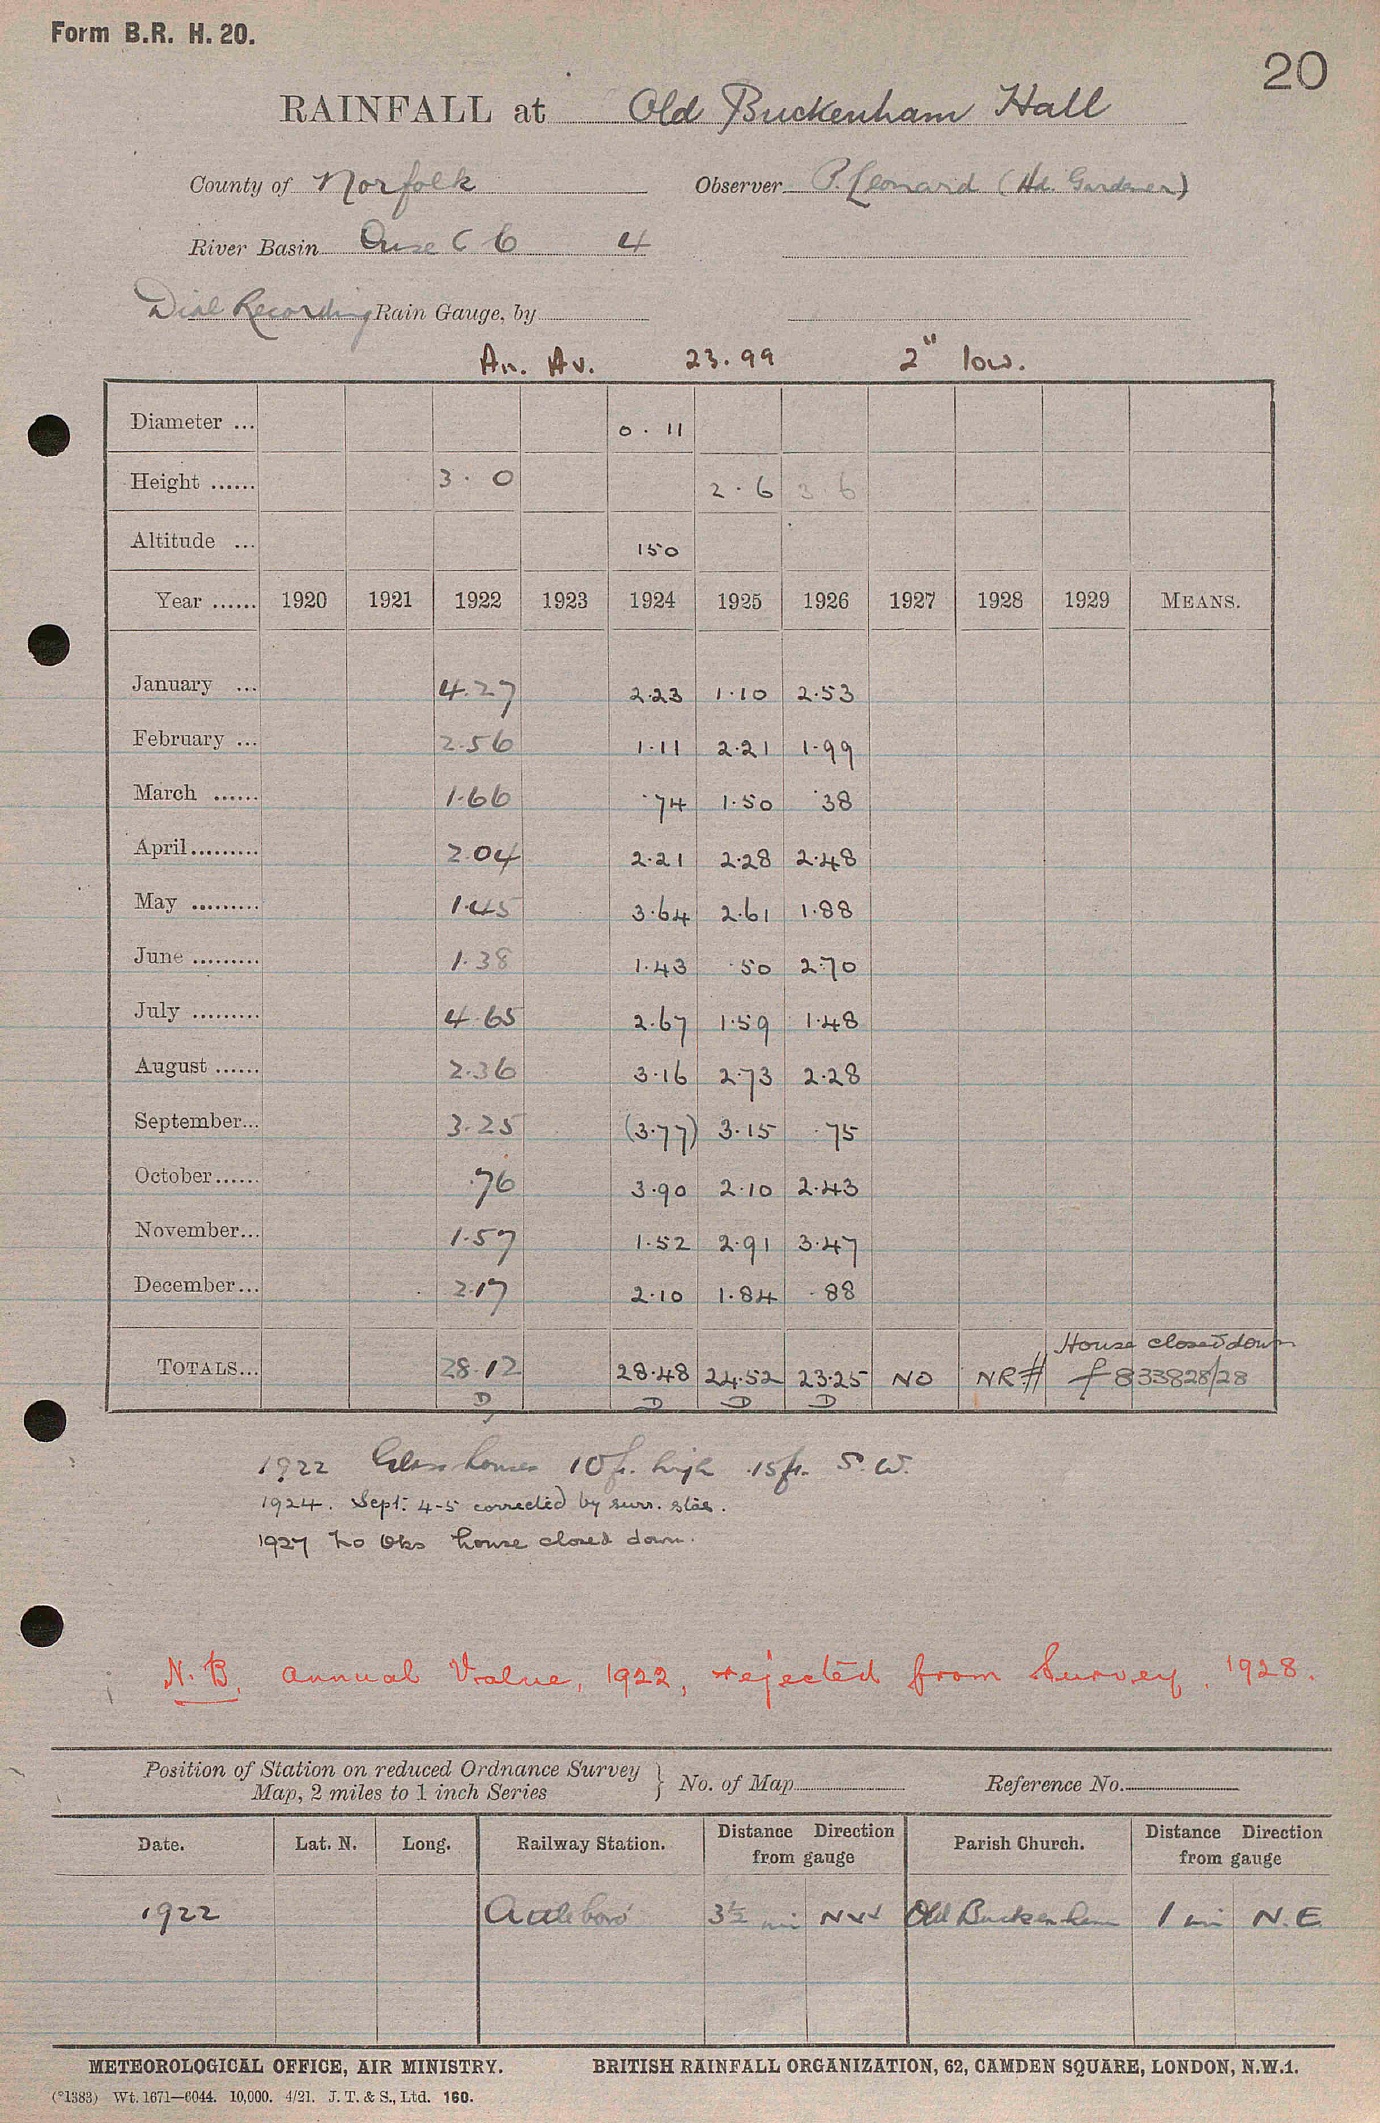 Form B.R. H. 20.
20
RAINFALL at Old Buckenham Hall
County of Norfolk Observer P. Leonard (Hd. Gardener)
River Basin Ouse C 6 4
Dial Recording Rain Gauge, by
An. Av. 23.99 2" low.
Diameter ... 0 . 11
Height ...... 3 . 0 2 . 6 3 6
Altitude ... 150
Year ...... 1920 1921 1922 1923 1924 1925 1926 1927 1928 1929 MEANS.
January ... 4.27 2.23 1.10 2.53
February ... 2.56 1.11 2.21 1.99
March ...... 1.66 .74 1.50 .38
April......... 2.04 2.21 2.28 2.48
May ......... 1.45 3.64 2.61 1.88
June ......... 1.38 1.43 .50 2.70
July ......... 4.65 2.67 1.59 1.48
August ...... 2.36 3.16 2.73 2.28
September... 3.25 (3.77) 3.15 .75
October...... .76 3.90 2.10 2.43
November... 1.57 1.52 2.91 3.47
December... 2.17 2.10 1.84 .88
House closed down
TOTALS... 28.12 28.48 24.52 23.25 NO NR# f 833828/28
D D D D
1922 Glass houses 10 ft. high 15 ft. S.W.
1924. Sept. 4-5 corrected by surr. stas.
1927 No Obs house closed down.
N.B. Annual Value, 1922, rejected from Survey, 1928.
Position of Station on reduced Ordnance Survey Map, 2 miles to 1 inch Series } No. of Map Reference No.
Date. Lat. N. Long. Railway Station. Distance Direction from gauge Parish Church. Distance Direction from gauge
1922 Attleboro' 3½ mi NW Old Buckenham 1 mi N.E.
METEOROLOGICAL OFFICE, AIR MINISTRY. BRITISH RAINFALL ORGANIZATION, 62, CAMDEN SQUARE, LONDON, N.W.1.
(*1383) Wt. 1671—6044. 10,000. 4/21. J. T. & S., Ltd. 160.